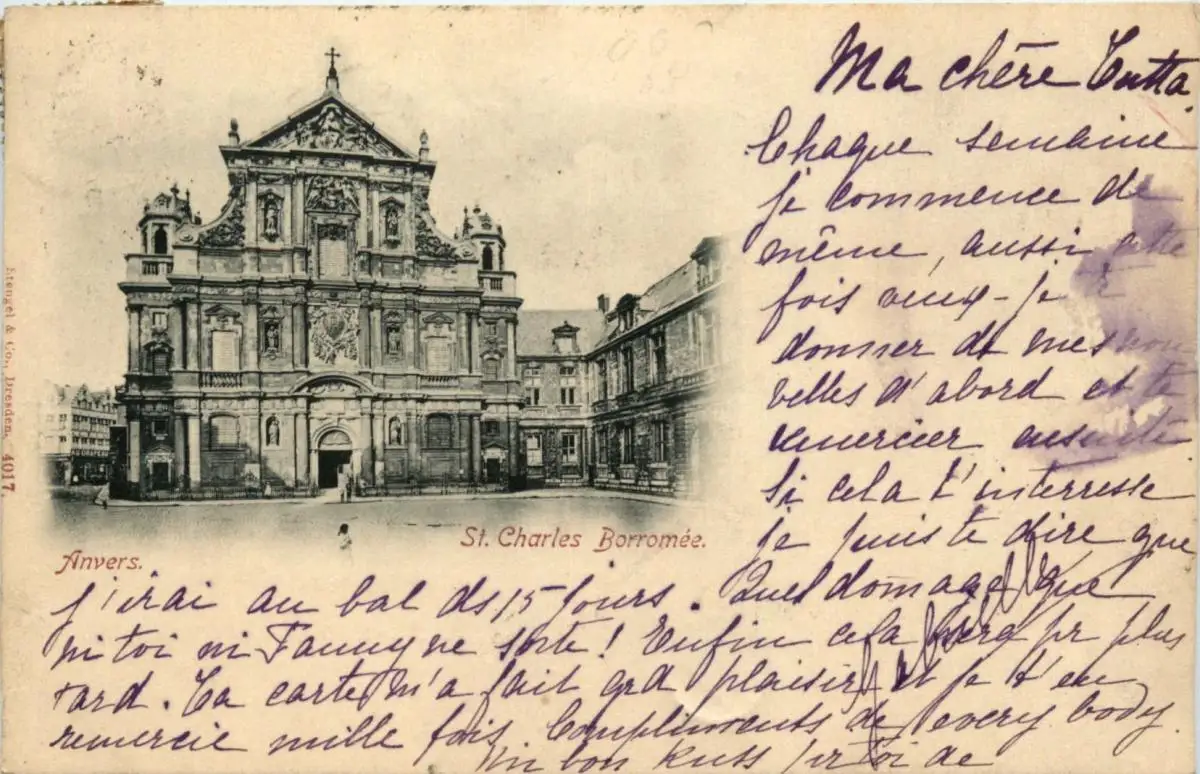 Ma chère Tutta.
Chaque semaine
je commence de
même, aussi cette
fois veux-je te
donner de mes nou
velles d'abord et te
remercier ensuite
Si cela t'interresse
je puis te dire que
j'irai au bal ds 15 jours. Quel domage que
ni toi ni Fanny ne sorte! Enfin cela sera pr plus
tard. Ta carte m'a fait grd plaisir et je t'en
remercie mille fois. Compliments de every body
Un bon kuss pr toi de
Anvers.
St. Charles Borromée.
Stengel & Co., Dresden. 4017.